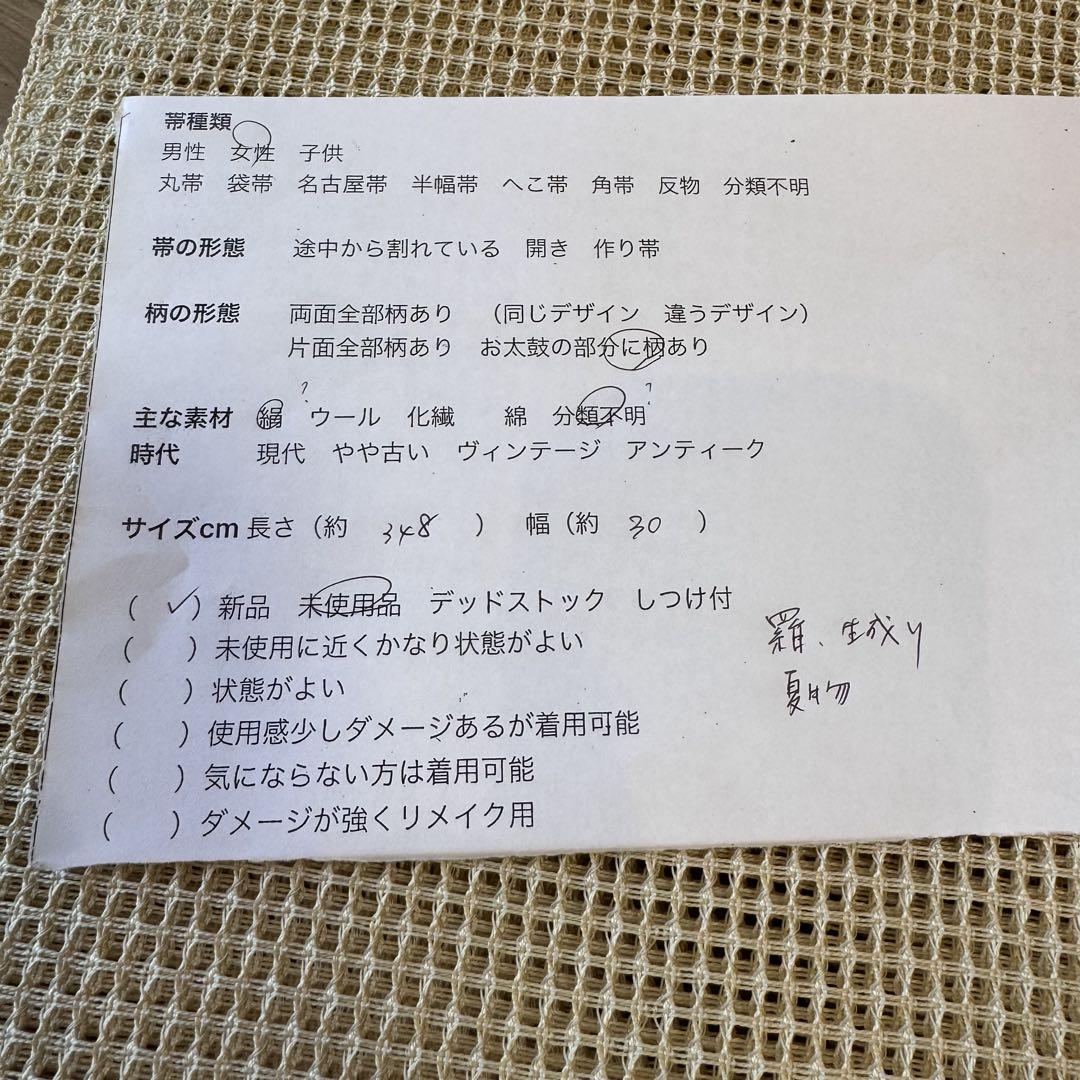 帯種類
男性 女性 子供
丸帯 袋帯 名古屋帯 半幅帯 へこ帯 角帯 反物 分類不明
帯の形態 途中から割れている 開き 作り帯
柄の形態 両面全部柄あり （同じデザイン 違うデザイン）
片面全部柄あり お太鼓の部分に柄あり
? ?
主な素材 絹 ウール 化繊 綿 分類不明
時代 現代 やや古い ヴィンテージ アンティーク
サイズcm 長さ（約 348 ） 幅（約 30 ）
（ ✓ ）新品 未使用品 デッドストック しつけ付
（ ）未使用に近くかなり状態がよい
（ ）状態がよい
（ ）使用感少しダメージあるが着用可能
（ ）気にならない方は着用可能
（ ）ダメージが強くリメイク用
羅、生成り
夏物